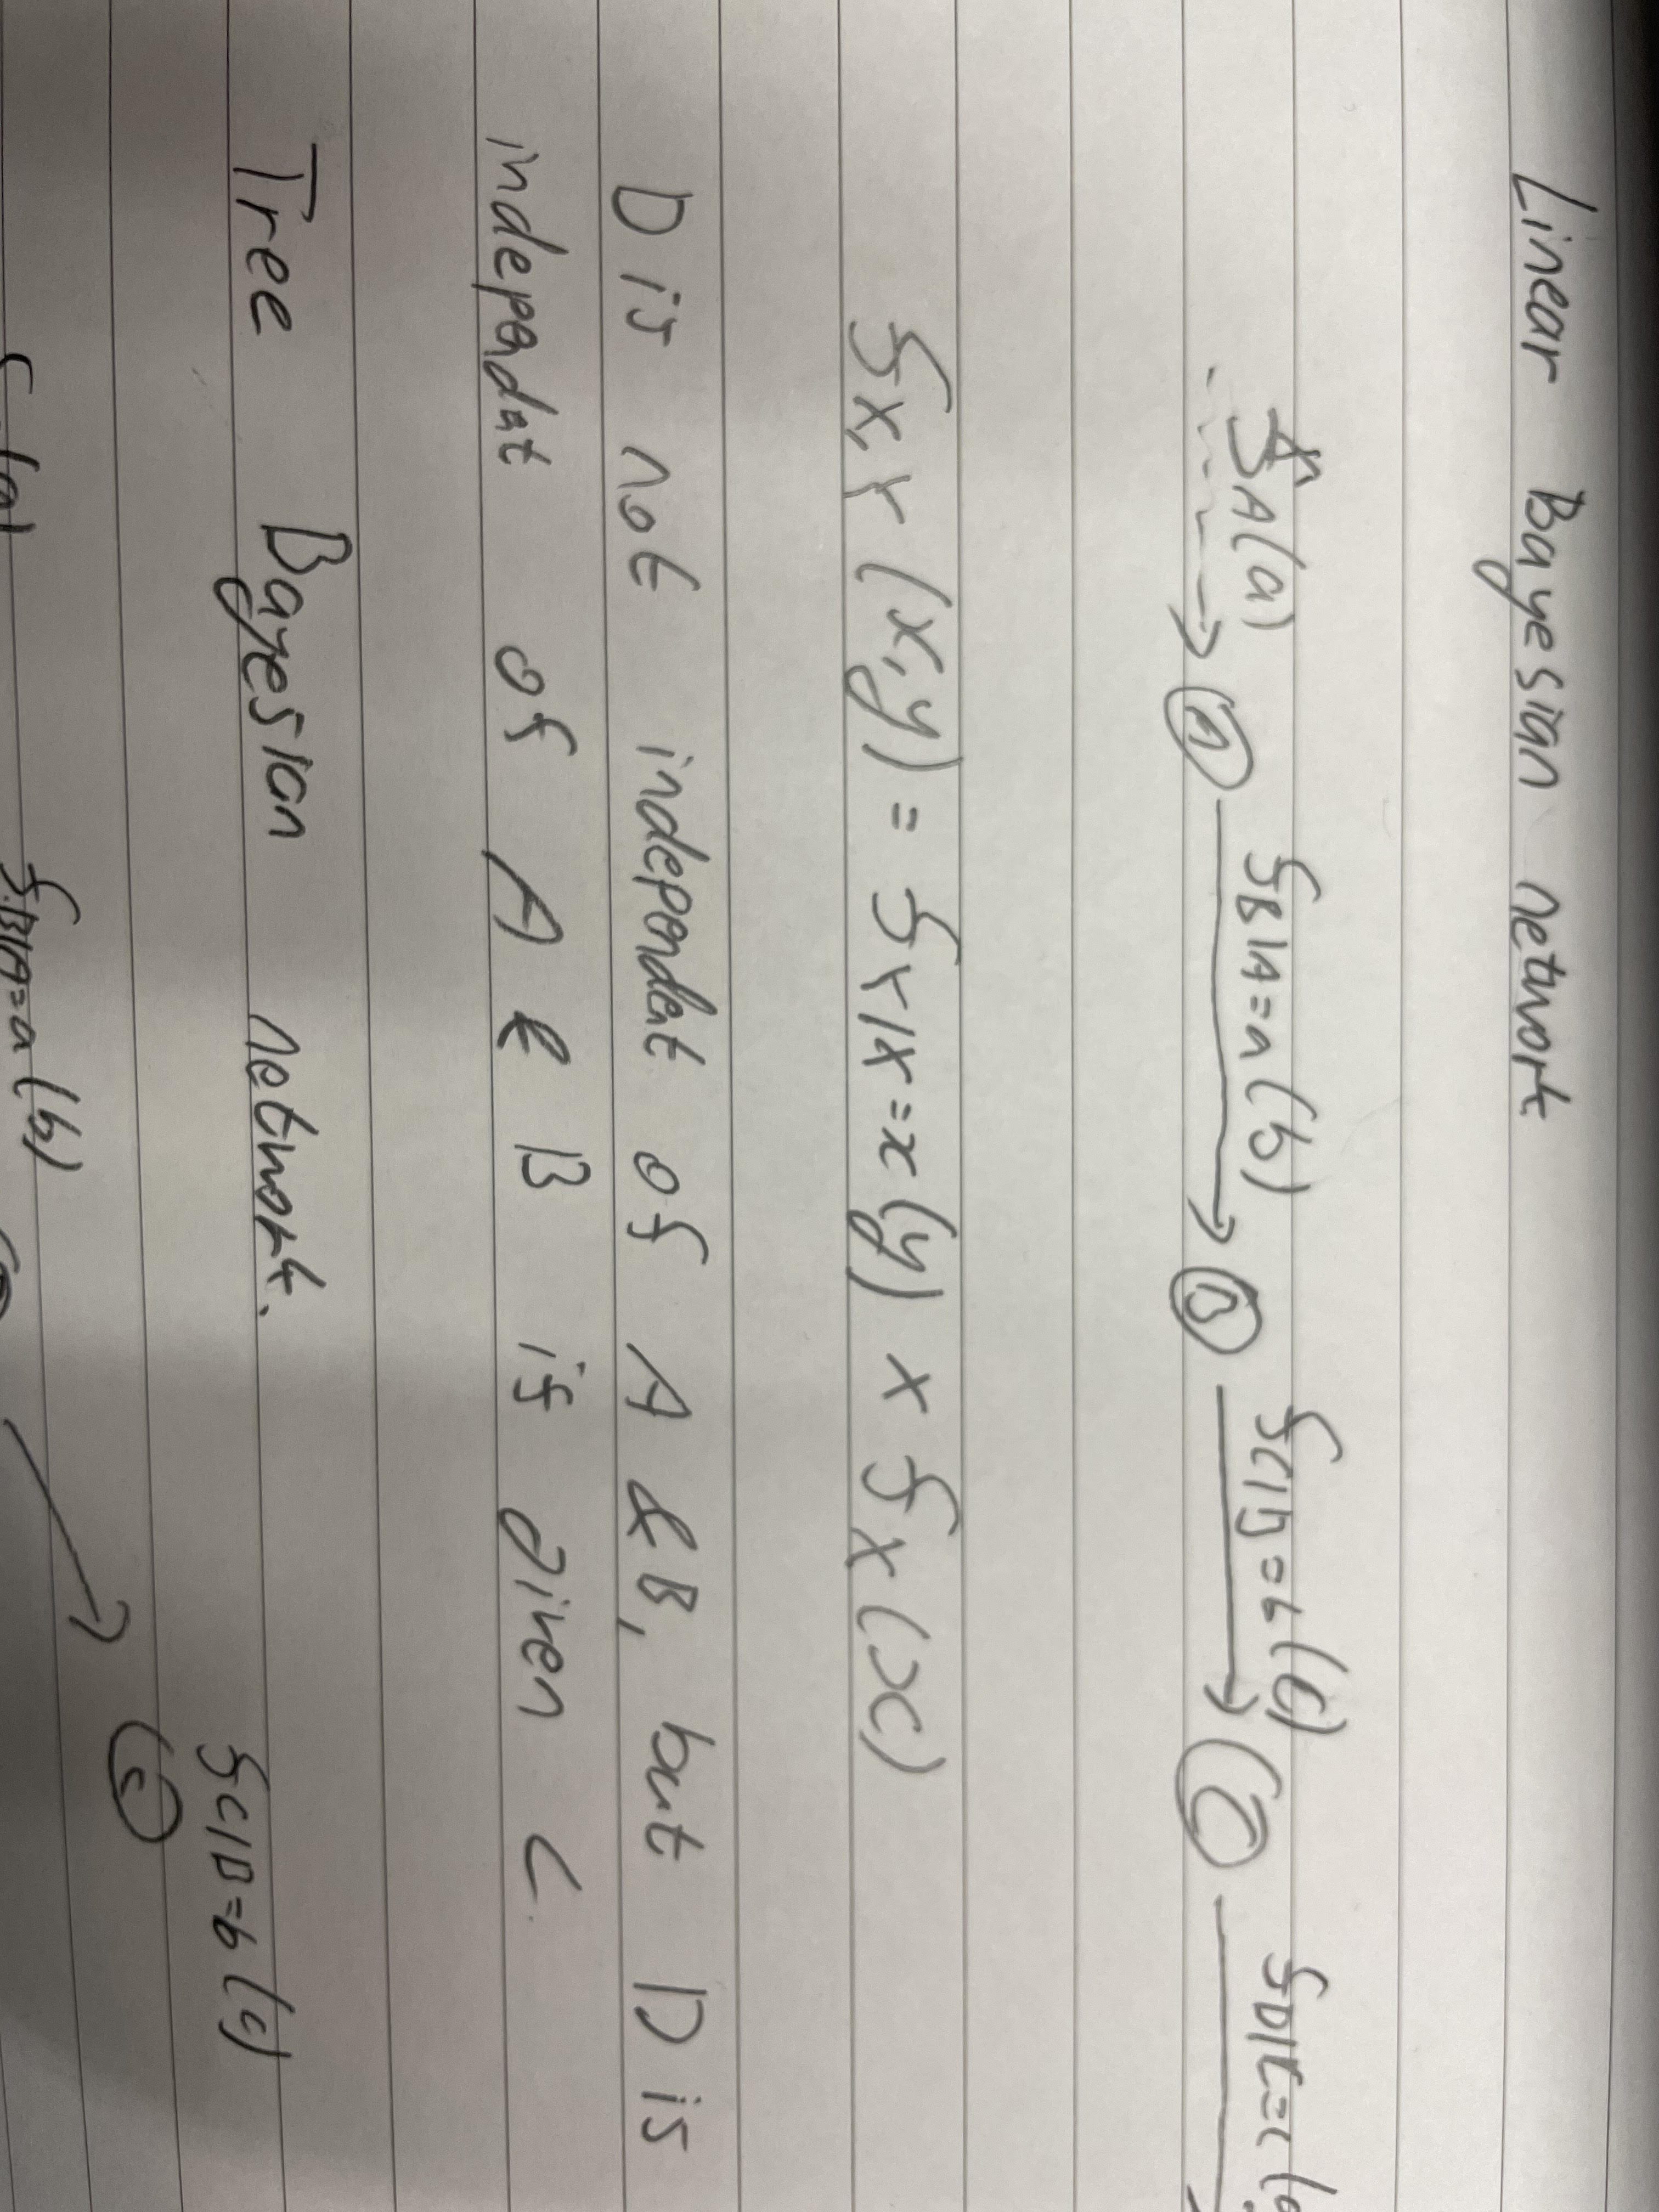 Linear Bayesian network
fA(a) fB|A=a(b) fC|B=b(c) fD|C=c(
A B C
fX,Y(x,y) = fY|X=x(y) × fX(x)
D is not independent of A & B, but D is
independent of A & B if given C.
Tree Bayesian network.
fC|B=b(c)
C
fB|A=a(b)